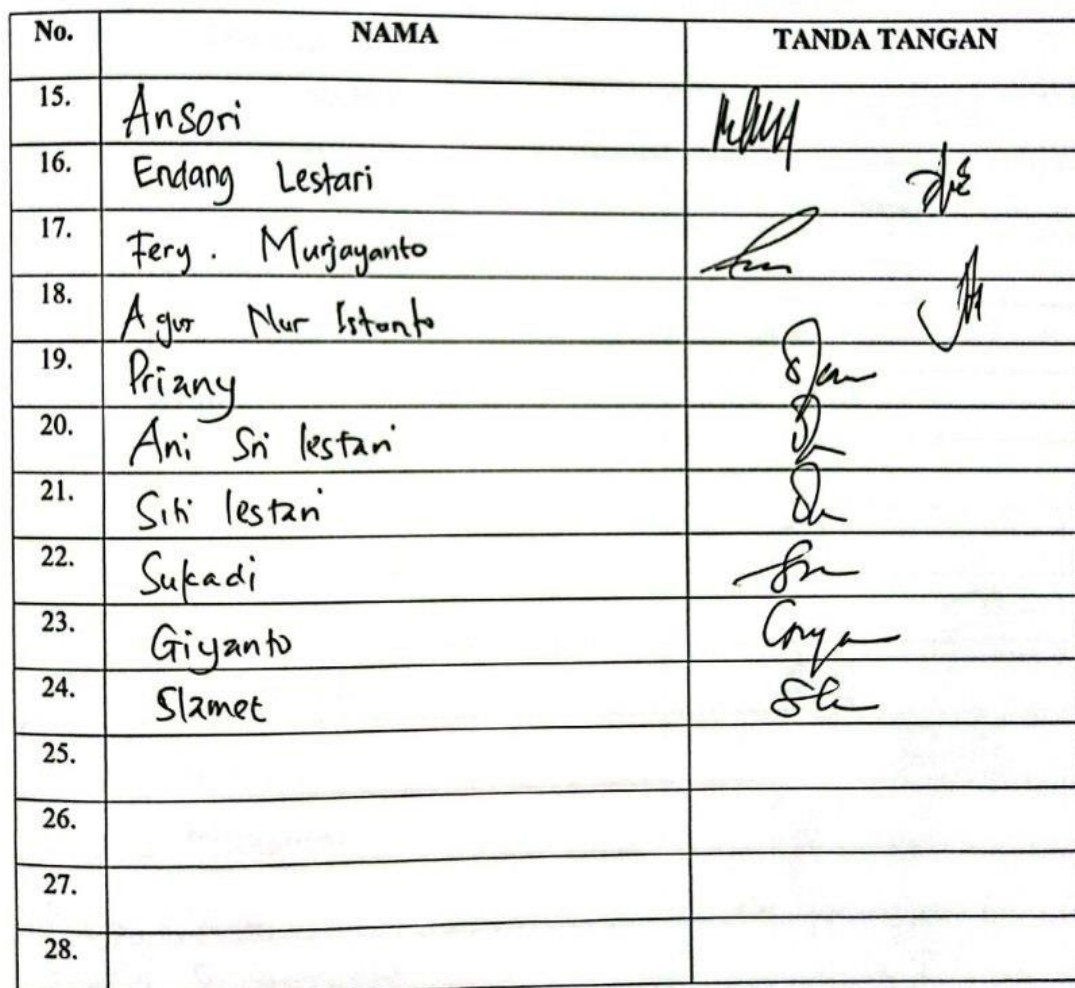 No. NAMA TANDA TANGAN
15. Ansori
16. Endang Lestari
17. Fery . Murjayanto
18. Agus Nur Istanto
19. Priany
20. Ani Sri lestari
21. Siti lestari
22. Sukadi
23. Giyanto
24. Slamet
25.
26.
27.
28.